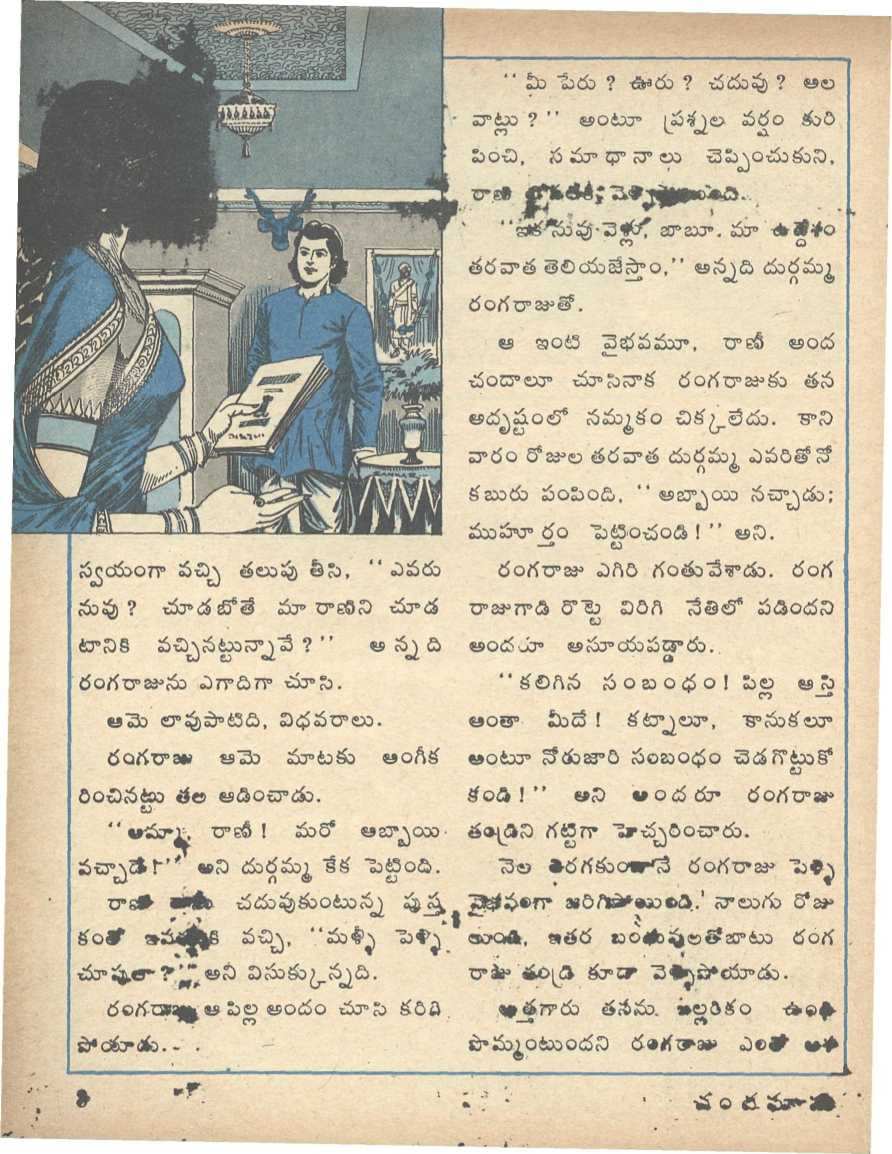 స్వయంగా వచ్చి తలుపు తీసి, ‘‘ఎవరు
నువు? చూడబోతే మా రాణిని చూడ
టానికి వచ్చినట్టున్నావే?’’ అన్నది
రంగరాజును ఎగాదిగా చూసి.
ఆమె లావుపాటిది, విధవరాలు.
రంగరాజు ఆమె మాటకు అంగీక
రించినట్టు తల ఆడించాడు.
‘‘అమ్మా, రాణీ! మరో అబ్బాయి
వచ్చాడే!’’ అని దుర్గమ్మ కేక పెట్టింది.
రాణి చదువుకుంటున్న పుస్త
కంతో ఇవతలికి వచ్చి, ‘‘మళ్ళీ పెళ్ళి
చూపులా?’’ అని విసుక్కున్నది.
రంగరాజు ఆ పిల్ల అందం చూసి కరిగి
పోయాడు.
‘‘మీ పేరు? ఊరు? చదువు? అల
వాట్లు?’’ అంటూ ప్రశ్నల వర్షం కురి
పించి, సమాధానాలు చెప్పించుకుని,
రాణి లోపలికి వెళ్ళిపోయింది.
‘‘ఇక నువు వెళ్లు, బాబూ. మా ఉద్దేశం
తరవాత తెలియజేస్తాం,’’ అన్నది దుర్గమ్మ
రంగరాజుతో.
ఆ ఇంటి వైభవమూ, రాణీ అంద
చందాలూ చూసినాక రంగరాజుకు తన
అదృష్టంలో నమ్మకం చిక్కలేదు. కాని
వారం రోజుల తరవాత దుర్గమ్మ ఎవరితోనో
కబురు పంపింది, ‘‘అబ్బాయి నచ్చాడు;
ముహూర్తం పెట్టించండి!’’ అని.
రంగరాజు ఎగిరి గంతువేశాడు. రంగ
రాజుగాడి రొట్టె విరిగి నేతిలో పడిందని
అందరూ అసూయపడ్డారు.
‘‘కలిగిన సంబంధం! పిల్ల ఆస్తి
అంతా మీదే! కట్నాలూ, కానుకలూ
అంటూ నోరుజారి సంబంధం చెడగొట్టుకో
కండి!’’ అని అందరూ రంగరాజు
తండ్రిని గట్టిగా హెచ్చరించారు.
నెల తిరగకుండానే రంగరాజు పెళ్ళి
వైభవంగా జరిగిపోయింది. నాలుగు రోజు
లుండి, ఇతర బంధువులతోబాటు రంగ
రాజు తండ్రి కూడా వెళ్ళిపోయాడు.
అత్తగారు తనను ఇల్లరికం ఉండి
పొమ్మంటుందని రంగరాజు ఎంతో ఆశ
8
చందమామ